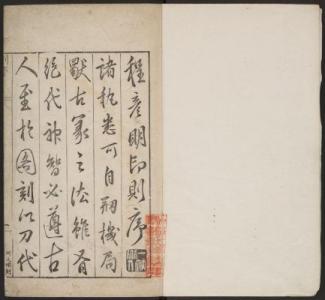 程彥明印則序
諸執卷可自剙機局
獸古篆之法雖有
絕代神智必遵古
人至於圖刻以刀代